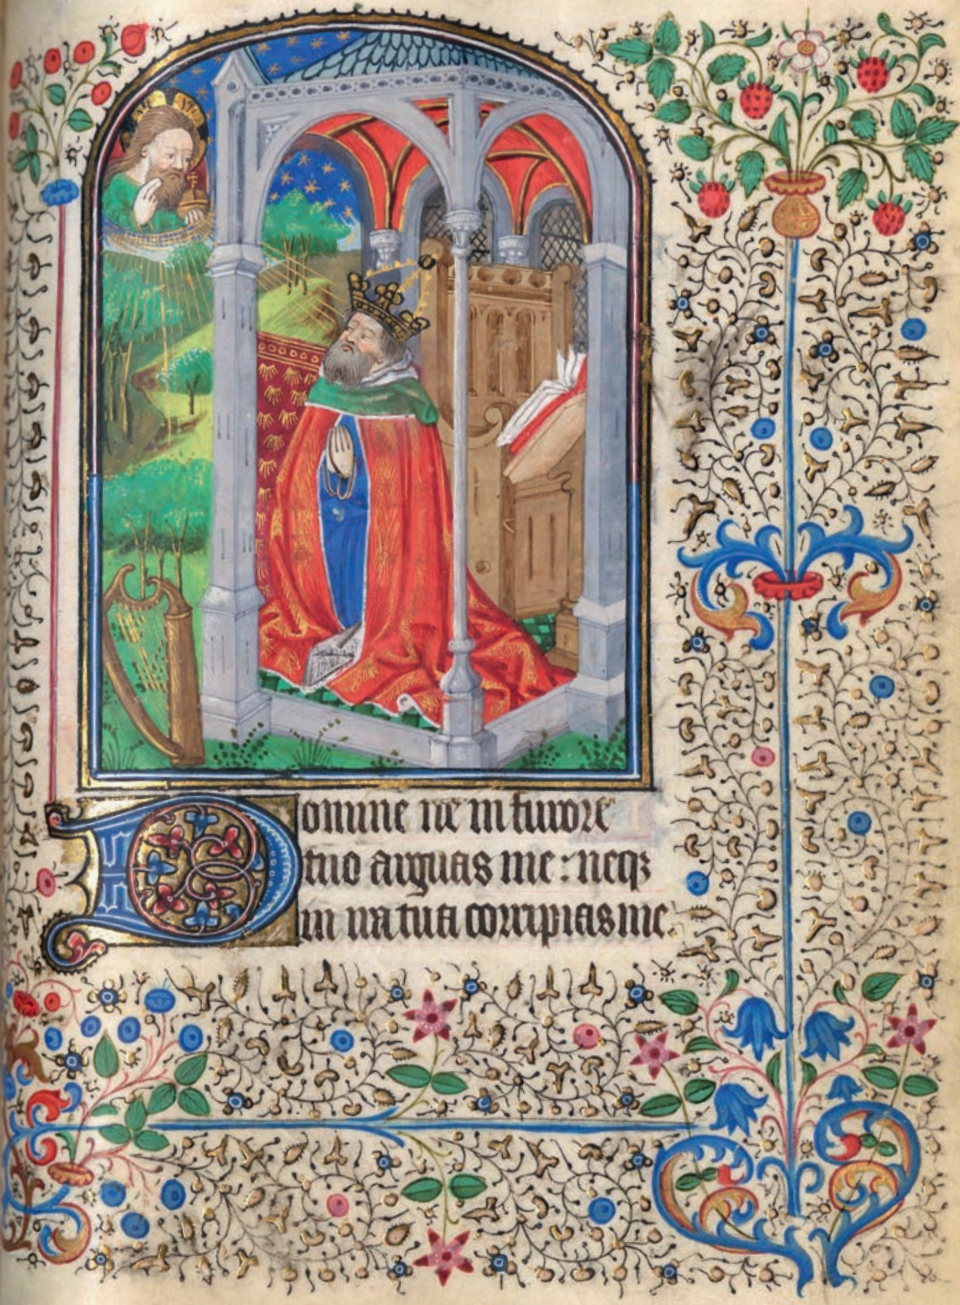 Domine ne in furore
tuo arguas me: neqꝫ
in ira tua corripias me.